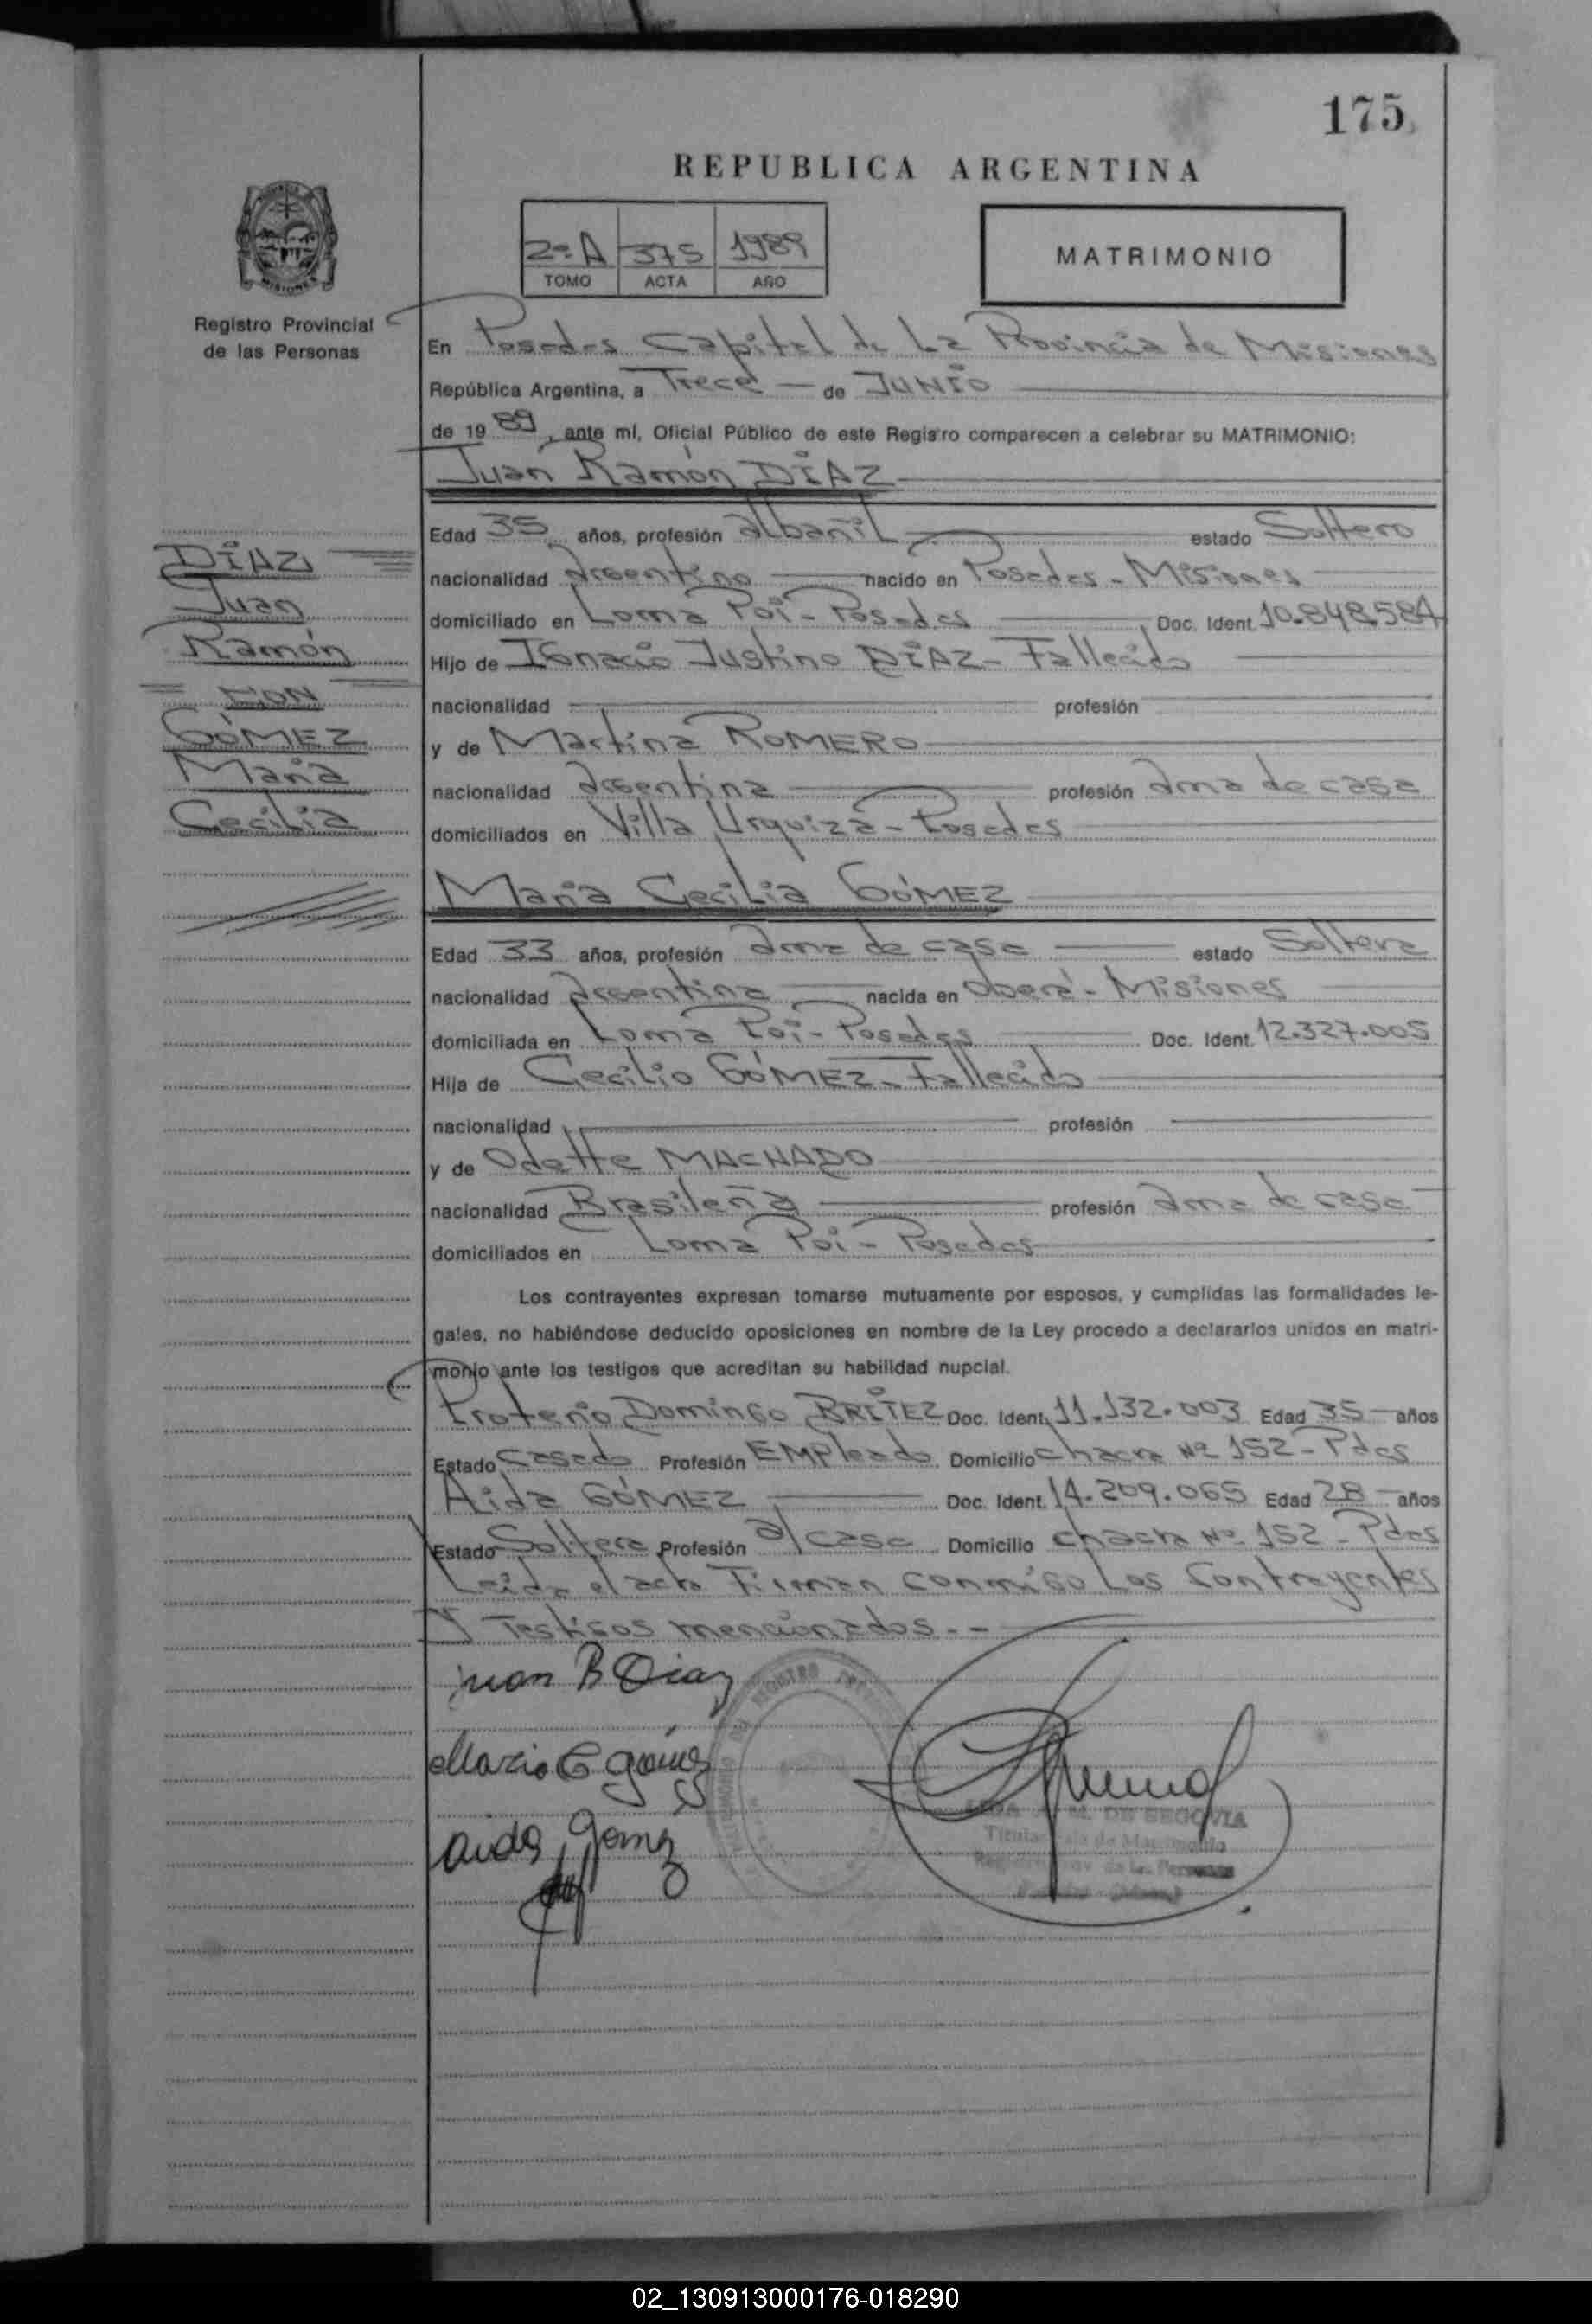 175
REPUBLICA ARGENTINA
2º A 375 1989
TOMO ACTA AÑO
MATRIMONIO
MISIONES
Registro Provincial
de las Personas
En Posadas Capital de La Provincia de Misiones
República Argentina, a Trece de JUNIO
de 19 89, ante mí, Oficial Público de este Registro comparecen a celebrar su MATRIMONIO:
Juan Ramón DÍAZ
Edad 35 años, profesión albañil estado Soltero
nacionalidad Argentino nacido en Posadas - Misiones
domiciliado en Loma Poi - Posadas Doc. Ident. 10.848.584
Hijo de IGnacio Justino DÍAZ - Fallecido
nacionalidad profesión
y de Martina ROMERO
nacionalidad Argentina profesión ama de casa
domiciliados en Villa Urquiza - Posadas
DÍAZ
Juan
Ramón
CON
GÓMEZ
María
Cecilia
María Cecilia GÓMEZ
Edad 33 años, profesión ama de casa estado Soltera
nacionalidad Argentina nacida en Oberá - Misiones
domiciliada en Loma Poi - Posadas Doc. Ident. 12.327.005
Hija de Cecilio GÓMEZ - Fallecido
nacionalidad profesión
y de Odette MACHADO
nacionalidad Brasileña profesión ama de casa
domiciliados en Loma Poi - Posadas
Los contrayentes expresan tomarse mutuamente por esposos, y cumplidas las formalidades le-
gales, no habiéndose deducido oposiciones en nombre de la Ley procedo a declararlos unidos en matri-
monio ante los testigos que acreditan su habilidad nupcial.
Proterio Domingo BRÍTEZ Doc. Ident. 11.132.003 Edad 35 años
Estado Casado Profesión EMPleado Domicilio chacra Nº 152 - Pdas
Aida GÓMEZ Doc. Ident. 14.209.065 Edad 28 años
Estado Soltera Profesión a/casa Domicilio chacra Nº 152 - Pdas
Leida el acta Firman conmigo Los Contrayentes
Y Testigos mencionados.-
Juan R Diaz
Maria C gómez
aida gomez
M. DE SEGOVIA
Titular Sala de Matrimonio
02_130913000176-018290